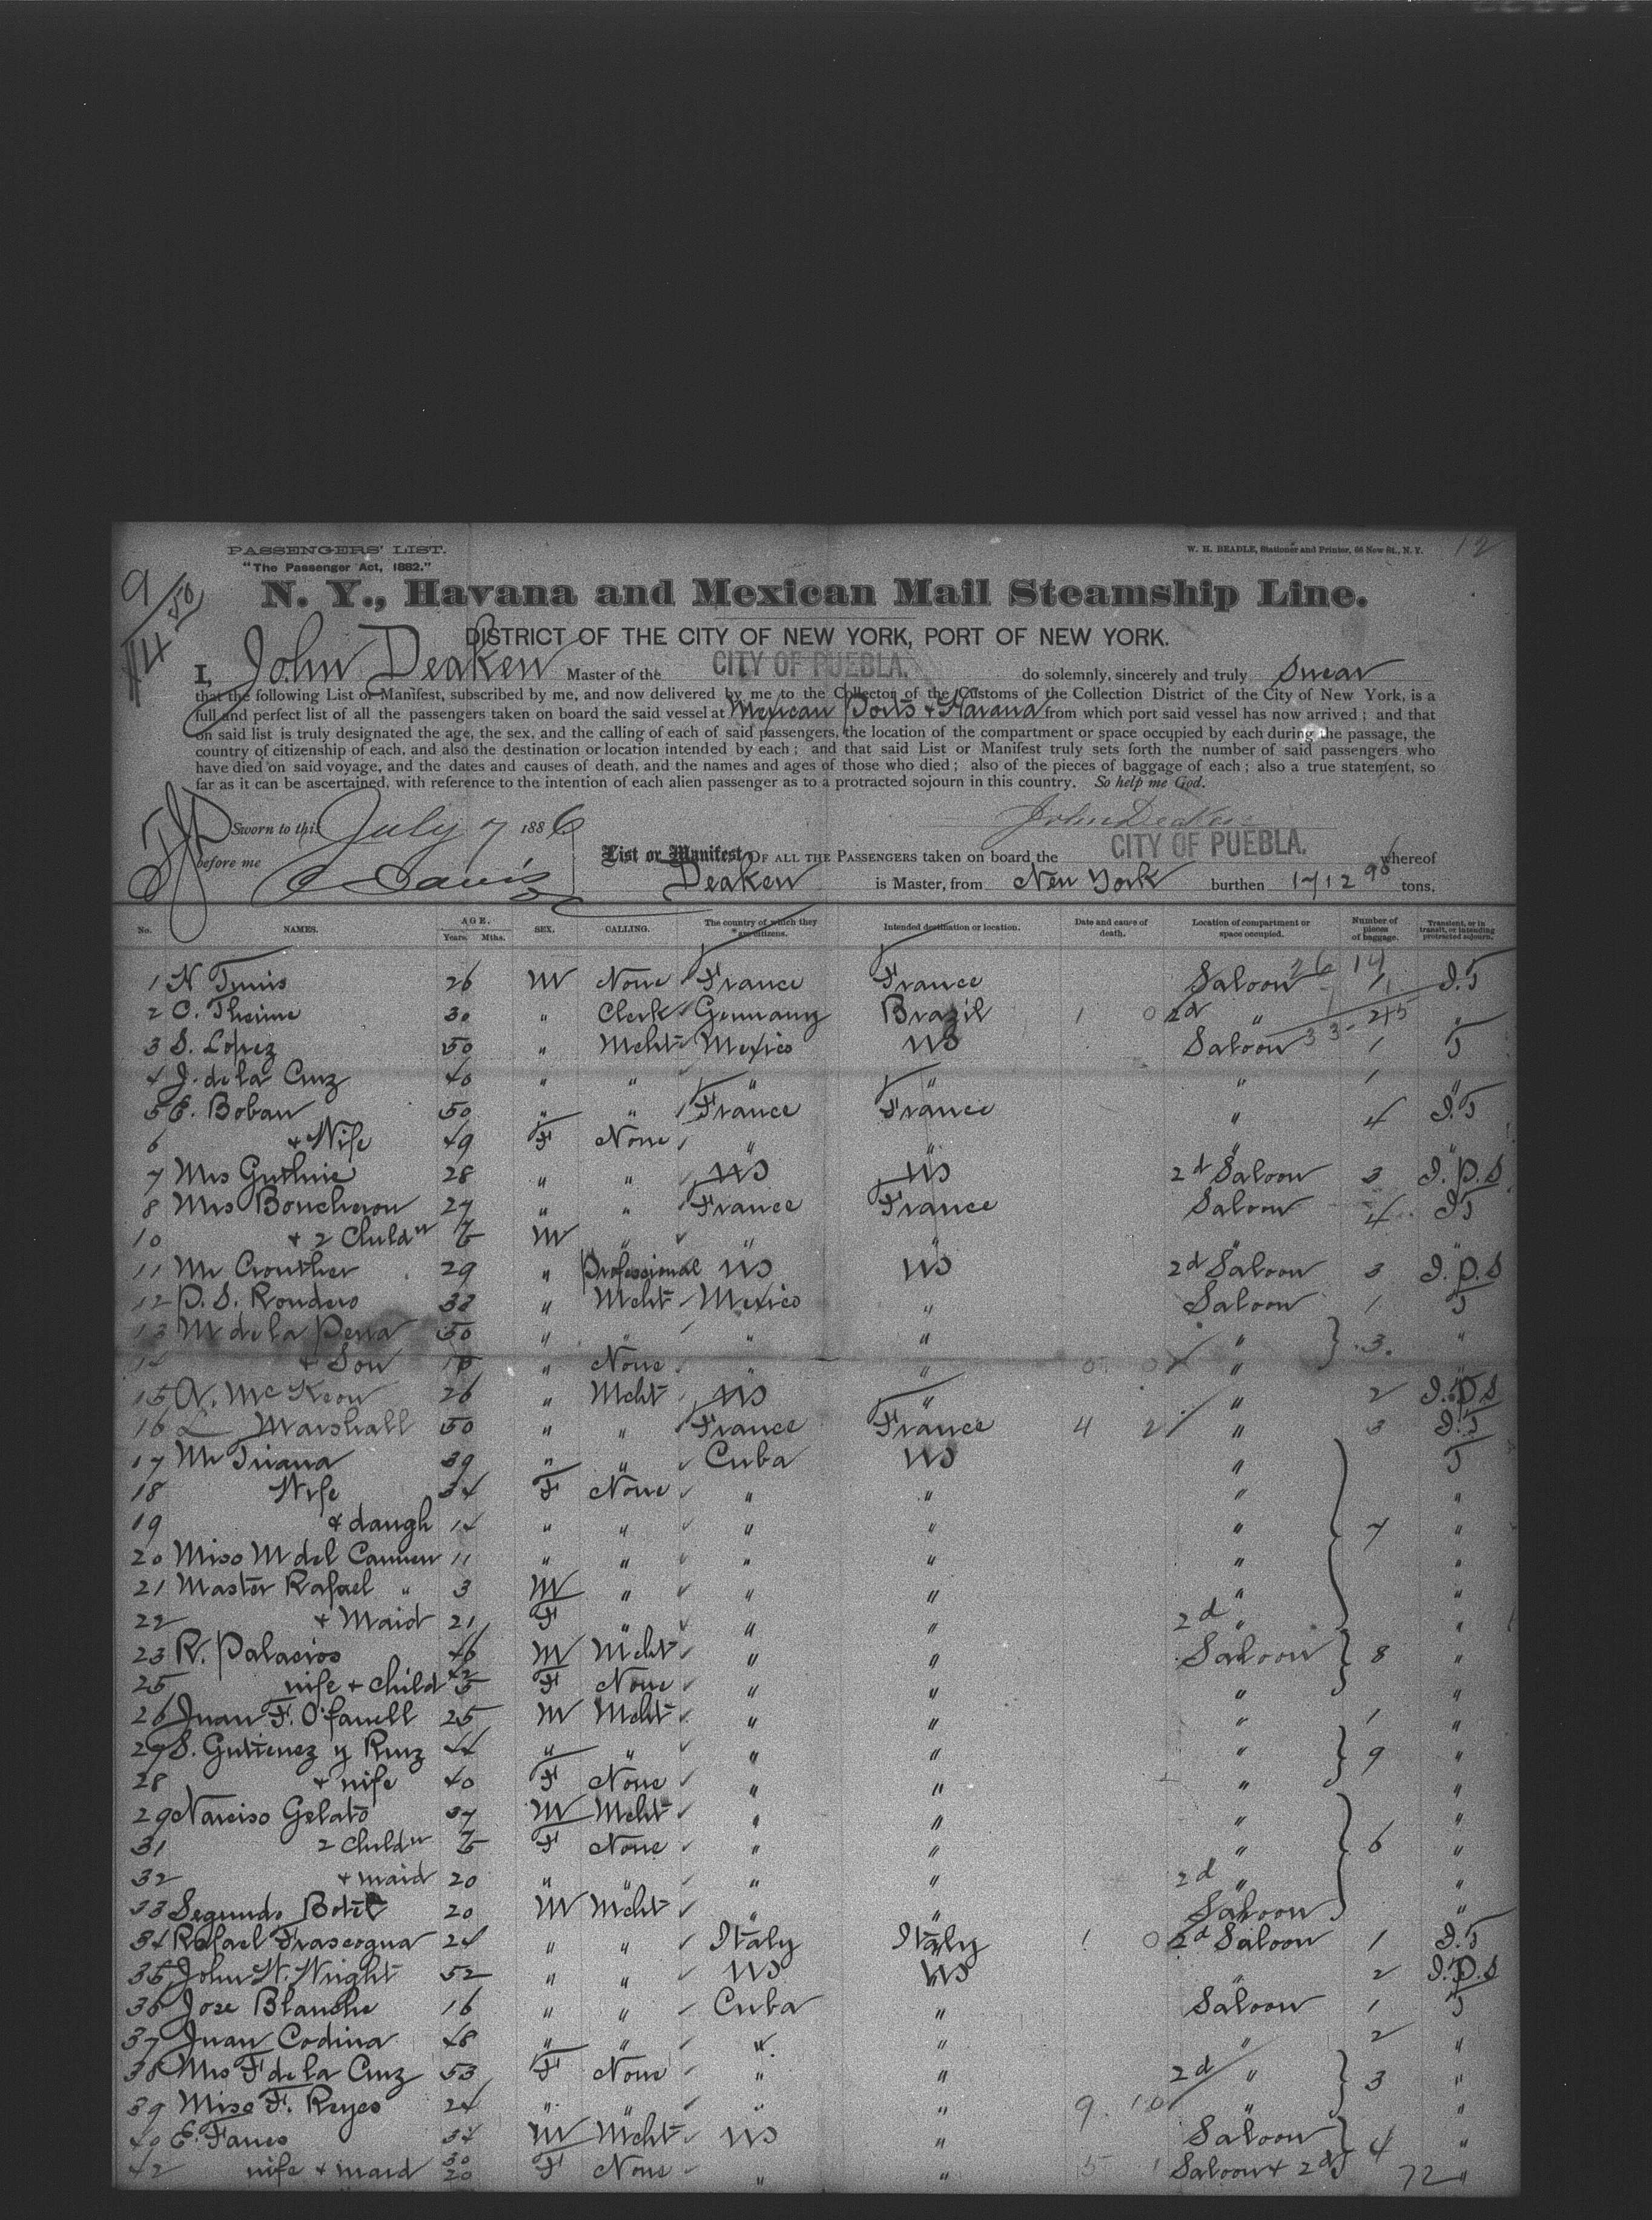 PASSENGERS' LIST.
W. H. BEADLE, Stationer and Printer, 66 New St., N. Y. 12
"The Passenger Act, 1882."
9/50
N. Y., Havana and Mexican Mail Steamship Line.
DISTRICT OF THE CITY OF NEW YORK, PORT OF NEW YORK.
I, John Deaken Master of the CITY OF PUEBLA. do solemnly, sincerely and truly swear
that the following List or Manifest, subscribed by me, and now delivered by me to the Collector of the Customs of the Collection District of the City of New York, is a
full and perfect list of all the passengers taken on board the said vessel at Mexican Ports & Havana from which port said vessel has now arrived ; and that
on said list is truly designated the age, the sex, and the calling of each of said passengers, the location of the compartment or space occupied by each during the passage, the
country of citizenship of each, and also the destination or location intended by each ; and that said List or Manifest truly sets forth the number of said passengers who
have died on said voyage, and the dates and causes of death, and the names and ages of those who died ; also of the pieces of baggage of each ; also a true statement, so
far as it can be ascertained, with reference to the intention of each alien passenger as to a protracted sojourn in this country. So help me God.
Sworn to this July 7 1886 John Deaken
before me C Davis
List or Manifest OF ALL THE PASSENGERS taken on board the CITY OF PUEBLA. whereof
Deaken is Master, from New York burthen 1712 90 tons.
No. NAMES. AGE. Years. Mths. SEX. CALLING. The country of which they are citizens. Intended destination or location. Date and cause of death. Location of compartment or space occupied. Number of pieces of baggage. Transient, or in transit, or intending protracted sojourn.
26 14
1 N Tunis 26 M None France France Saloon 1 I.T
2 C. Theime 30 " Clerk Germany Brazil 1 0 2d " 1 "
33-245
3 S. Lopez 50 " Mcht Mexico US Saloon 1 T
4 J. de la Cruz 40 " " " " " 1 "
5 E. Boban 50 " " France France " 4 I.T
6 & Wife 49 F None " " " "
7 Mrs Guthrie 28 " " US US 2d Saloon 3 I.P.S
8 Mrs Boucheron 27 " " France France Saloon 4 I.T
10 & 2 Childn 7/5 M " " " " "
11 Mr Crouther 29 " Professional US US 2d Saloon 3 I.P.S
12 P. S. Rondero 38 " Mcht Mexico " Saloon 1 T
13 M de la Pena 50 " " " " " } 3. "
14 & Son 10 " None " " " "
15 A. McKeon 26 " Mcht US " " 2 I.P.S
16 L Marshall 50 " " France France 4 2 " 3 I.T
17 Mr Triana 39 " " Cuba US " T
18 Wife 34 F None " " " "
19 & daugh 14 " " " " " 7 "
20 Miss M del Carmen 11 " " " " " "
21 Master Rafael " 3 M " " " " "
22 & Maid 21 F " " " 2d " "
23 R. Palacios 46 M Mcht " " Saloon } 8 "
25 wife & child 42/5 F None " " " "
26 Juan F. O'fanell 25 M Mcht " " " 1 "
27 S. Gutierrez y Ruiz 44 " " " " " } 9 "
28 & wife 40 F None " " " "
29 Narciso Gelato 37 M Mcht " " " "
31 2 Childn 7/5 F None " " " 6 "
32 & maid 20 " " " " 2d " "
33 Segundo Botet 20 M Mcht " " Saloon "
34 Rafael Frascogna 24 " " Italy Italy 1 0 2d Saloon 1 I.T
35 John W. Wright 52 " " US US " 2 I.P.S
36 Jose Blanche 16 " " Cuba " Saloon 1 T
37 Juan Codina 48 " " " " " 2 "
38 Mrs F de la Cruz 53 F None " " 2d " } 3 "
39 Miss F. Reyes 24 " " " " 9 10 " "
40 E. Fanes 34 M Mcht US " Saloon } 4 "
42 wife & maid 30/20 F None " " 5 1 Saloon & 2d 72 "